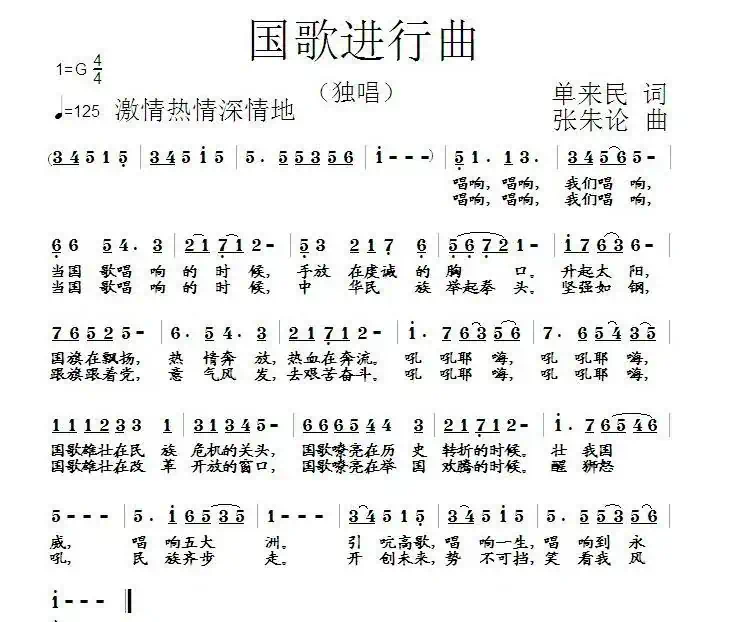 国歌进行曲
1=G 4/4
（独唱）
单来民 词
♩=125 激情热情深情地
张朱论 曲
(3 4 5 1 5 | 3 4 5 i 5 | 5. 5 5 3 5 6 | i - - -) | 5 1. 1 3. | 3 4 5 6 5 - |
唱响，唱响， 我们唱 响，
唱响，唱响， 我们唱 响，
6 6 5 4. 3 | 2 1 7 1 2 - | 5 3 2 1 7 6 | 5 6 7 2 1 - | i 7 6 3 6 - |
当国 歌唱 响的时 候， 手放 在虔诚 的 胸 口。 升起太 阳，
当国 歌唱 响的时 候， 中 华民 族 举起拳 头。 坚强如 钢，
7 6 5 2 5 - | 6. 5 4. 3 | 2 2 1 7 1 2 - | i. 7 6 3 5 6 | 7. 6 5 4 3 5 |
国旗在飘扬， 热 情奔 放，热血在奔流。 吼 吼耶 嗨， 吼 吼耶 嗨，
跟旗跟着党， 意 气风 发，去艰苦奋斗。 吼 吼耶 嗨， 吼 吼耶 嗨，
1 1 1 2 3 3 1 | 3 1 3 4 5 - | 6 6 6 5 4 4 3 | 2 1 7 1 2 - | i. 7 6 5 4 6 |
国歌雄壮在民 族 危机的关头， 国歌嘹亮在历 史 转折的时候。 壮 我国
国歌雄壮在改 革 开放的窗口， 国歌嘹亮在举 国 欢腾的时候。 醒 狮怒
5 - - - | 5. i 6 5 3 5 | 1 - - - | 3 4 5 1 5 | 3 4 5 i 5 | 5. 5 5 3 5 6 |
威， 唱 响五大 洲。 引 吭高歌，唱 响一生，唱 响到 永
吼， 民 族齐步 走。 开 创未来，势 不可挡，笑 看我 风
i - - - ‖